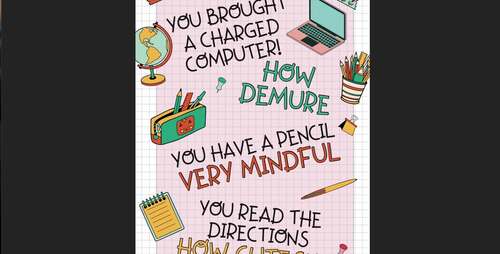 YOU BROUGHT
A CHARGED
COMPUTER!
HOW
DEMURE
YOU HAVE A PENCIL
VERY MINDFUL
YOU READ THE
DIRECTIONS
HOW